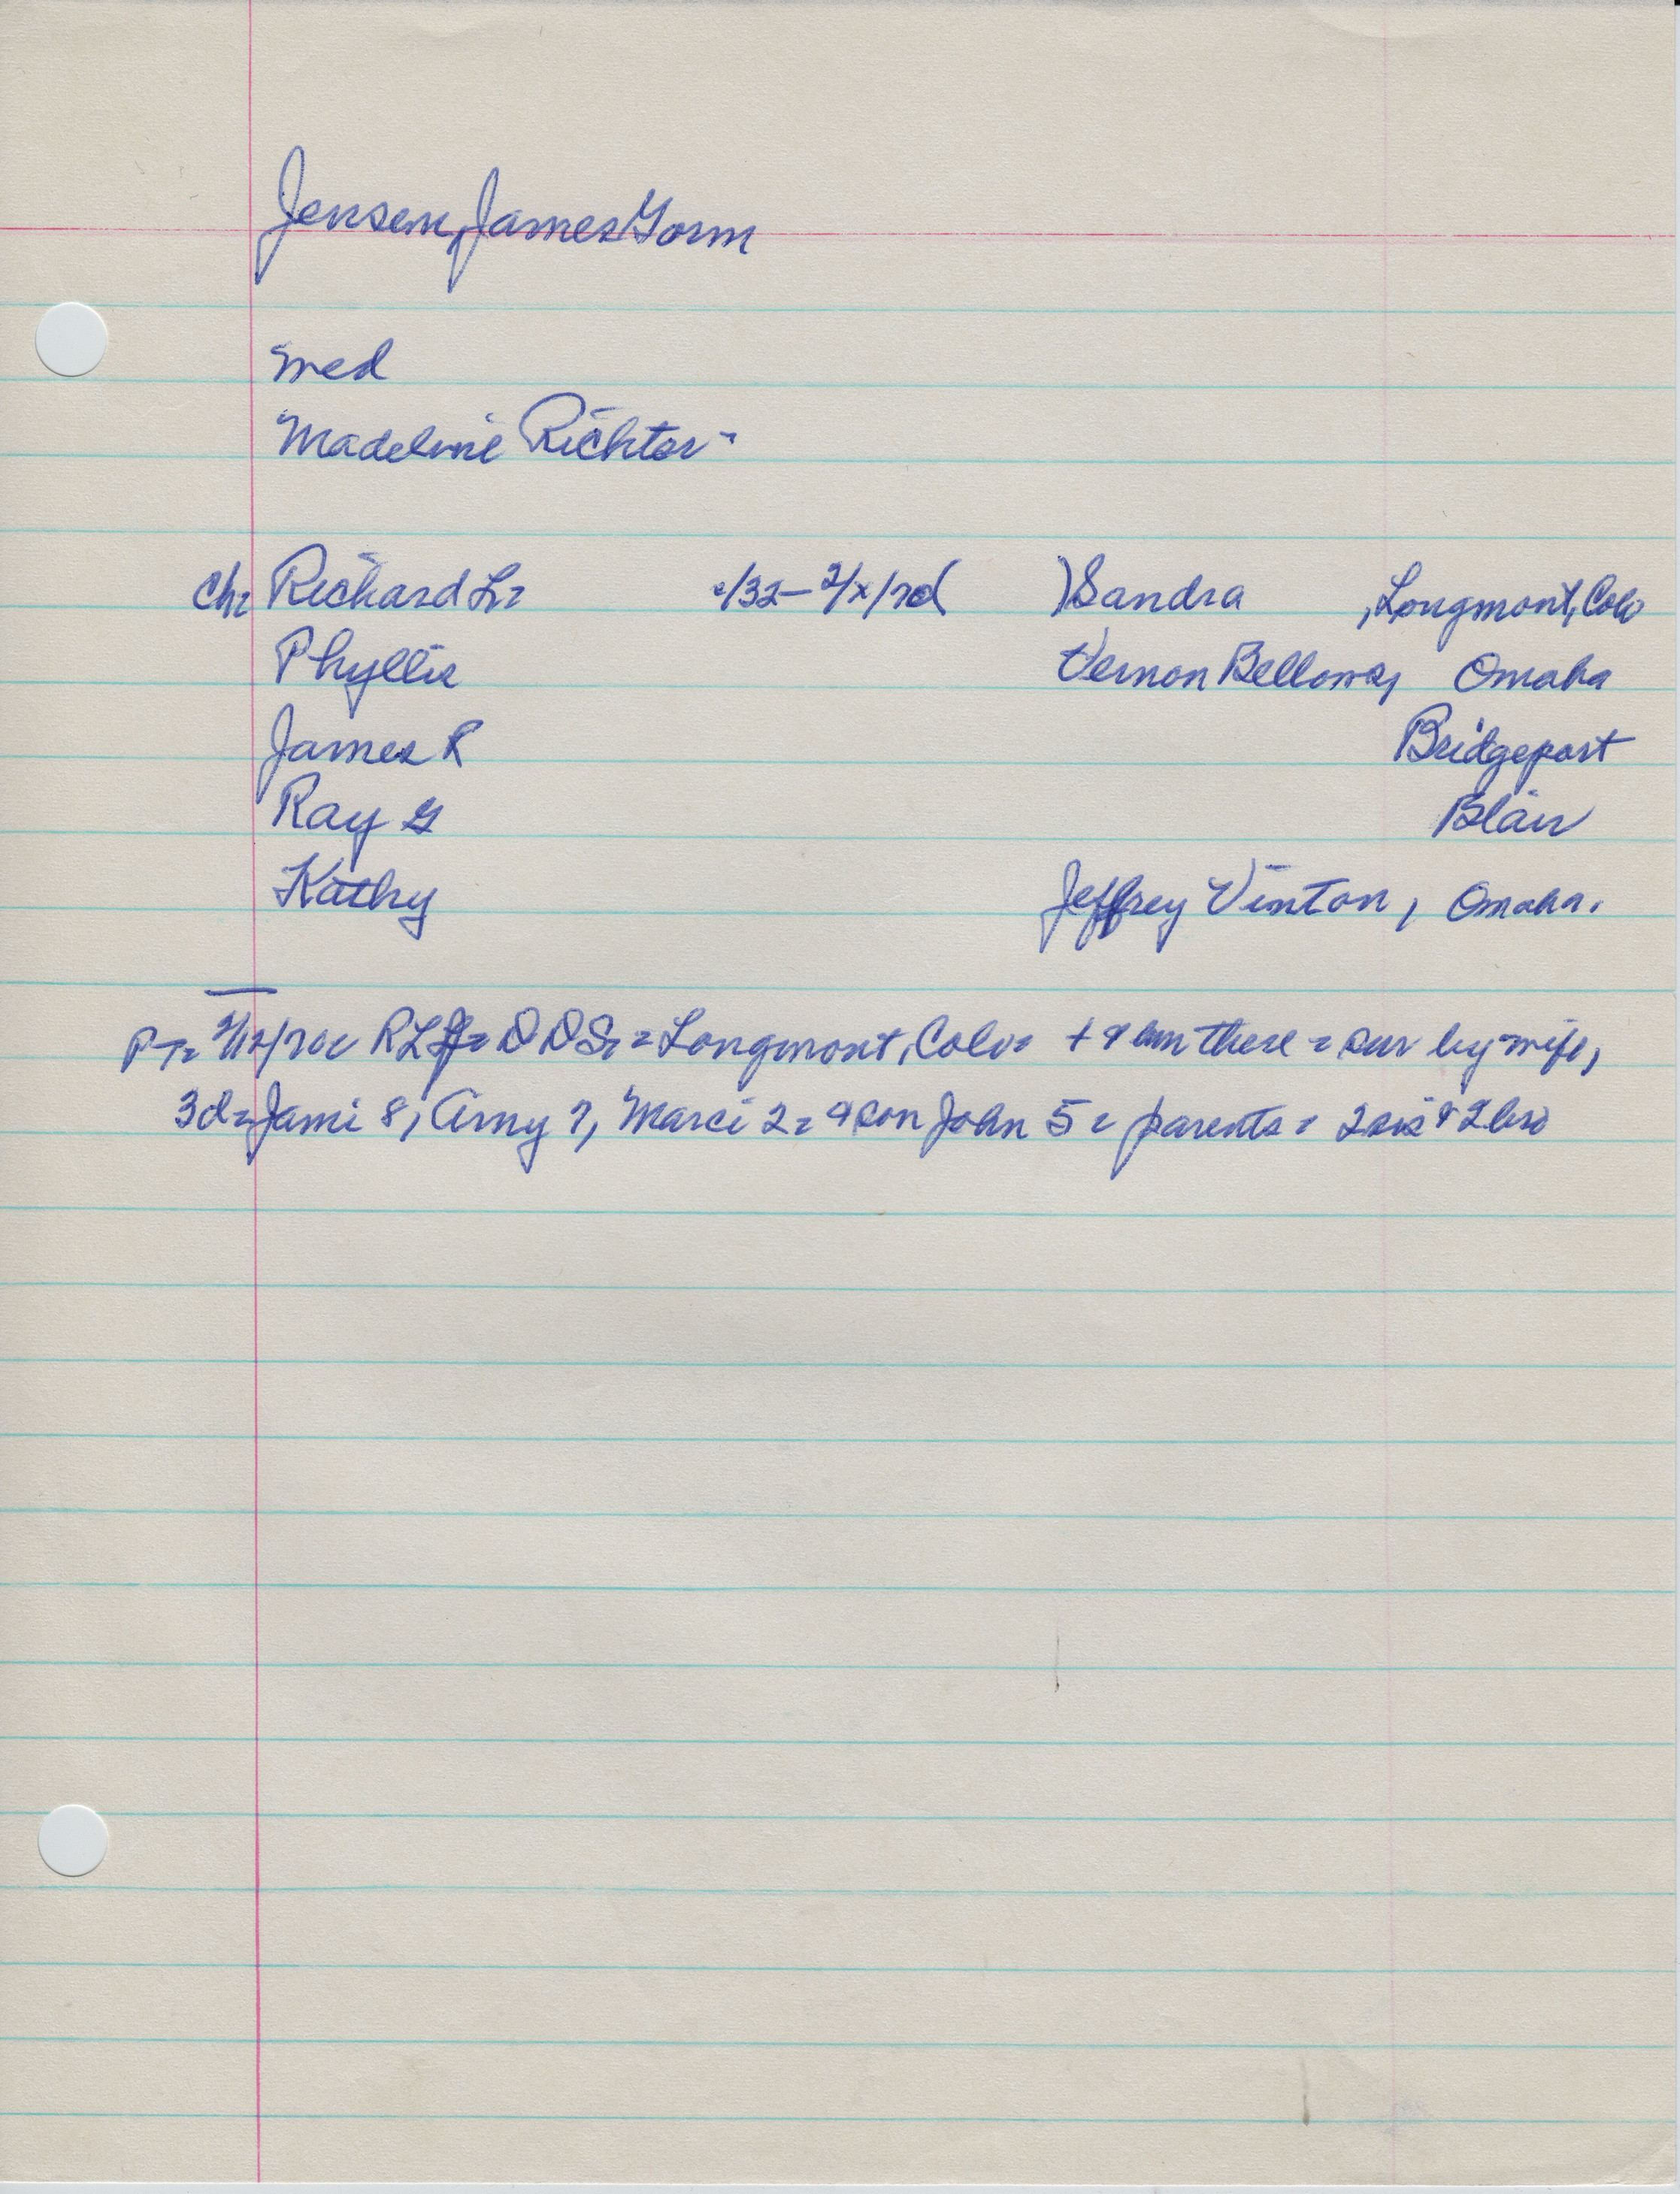 Jensen, James Gorm
med
Madeline Richter-
Ch= Richard L= /32- 2/x/70( )Sandra , Longmont, Colo
Phyllis Vernon Bellows, Omaha
James R Bridgeport
Ray G Blair
Kathy Jeffrey Vinton, Omaha.
PT= RLJ= DDS= Longmont, Colo= + & bur there = sur by wife,
3d= Jami 8, Amy 7, Marci 2= & son John 5= parents= 2 sis & 2 bro